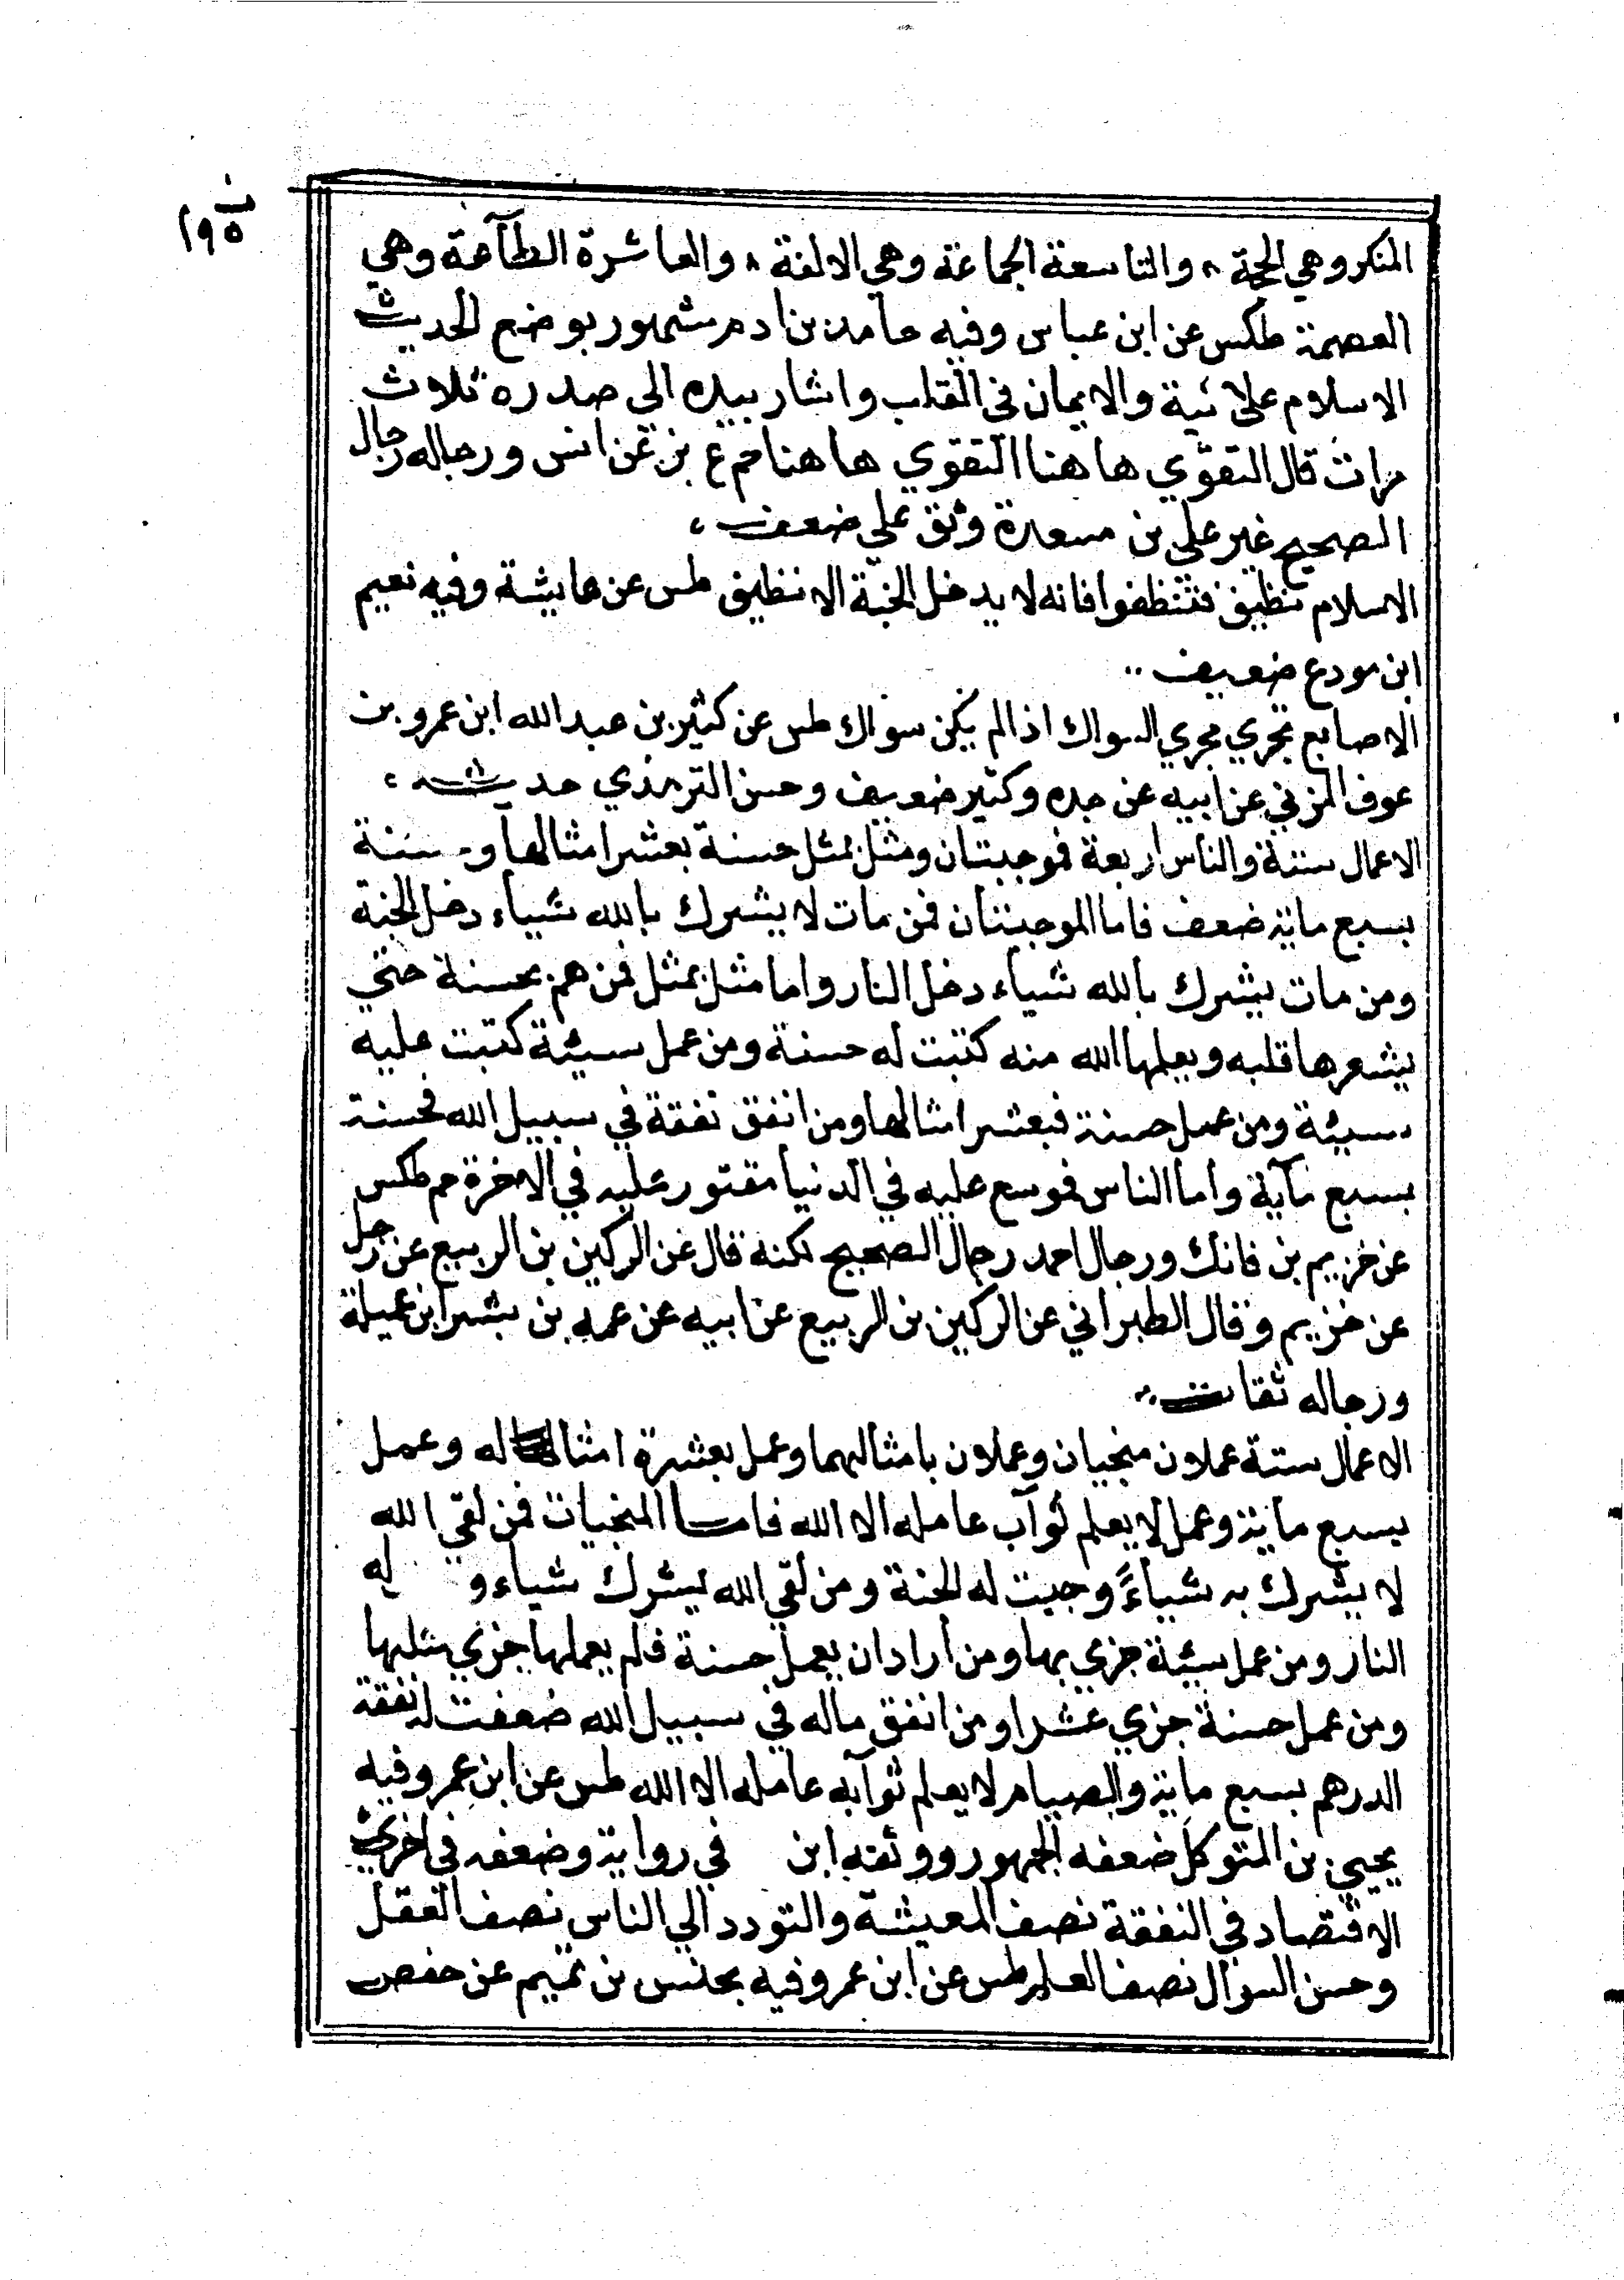 ١٩٥
المنكر وهي الحجة ٨ والتاسعة الجماعة وهي الالفة ٨ والعاشرة الطآعة وهي
العصمة طكس عن ابن عباس وفيه حامد بن ادم مشهور بوضع الحديث
الاسلام علانية والايمان في القلب واشار بيده الي صدره ثلاث
مرات قال التقوي هاهنا التقوي هاهنا حم ع بز عن انس ورجاله رجال
الصحيح غير علي بن مسعدة وثق علي ضعف،
الاسلام نظيف فتنظفوا فانه لا يدخل الجنة الا نظيف طس عن عايشة وفيه نعيم
ابن مودع ضعيف
الاصابع تجري مجري السواك اذا لم يكن سواك طس عن كثير بن عبد الله ابن عمرو بن
عوف المزني عن ابيه عن جده وكثير ضعيف وحسن الترمذي حديثه،
الاعمال ستة والناس اربعة فموجبتان ومثل بمثل حسنة بعشر امثالها وحسنة
بسبع ماية ضعف فاما الموجبتان فمن مات لا يشرك بالله شياء دخل الجنة
ومن مات يشرك بالله شياء دخل النار واما مثل بمثل فمن هم بحسنة حتي
يشعرها قلبه ويعلمها الله منه كتبت له حسنة ومن عمل سيئة كتبت عليه
سيئة ومن عمل حسنة فبعشر امثالها ومن انفق نفقة في سبيل الله فحسنة
بسبع مآية واما الناس فموسع عليه في الدنيا مقتور عليه في الاخرة حم طكس
عن خزيم بن فاتك ورجال احمد رجال الصحيح لكنه قال عن الركين بن الربيع عن رجل
عن خزيم وقال الطبراني عن الركين بن الربيع عن ابيه عن عمه بن بشر ابن عميلة
ورجاله ثقات
الاعمال ستة عملان منجيان وعملان بامثالهما وعمل بعشرة امثاله وعمل
بسبع ماية وعمل لا يعلم ثوآب عامله الا الله فاما المنجيات فمن لقي الله
لا يشرك به شياءً وجبت له الجنة ومن لقي الله يشرك شياء و له
النار ومن عمل سيئة جزي بها ومن اراد ان يعمل حسنة فلم يعملها جزي مثلها
ومن عمل حسنة جزي عشرا ومن انفق ماله في سبيل الله ضعفت له نفقة
الدرهم بسبع ماية والصيام لا يعلم ثوآبه عامله الا الله طس عن ابن عمر وفيه
يحيي بن المتوكل ضعفه الجمهور ووثقه ابن في رواية وضعفه في اخري
الاقتصاد في النفقة نصف المعيشة والتودد الي الناس نصف العقل
وحسن السوال نصف العلم طس عن ابن عمر وفيه بن تميم عن حفص